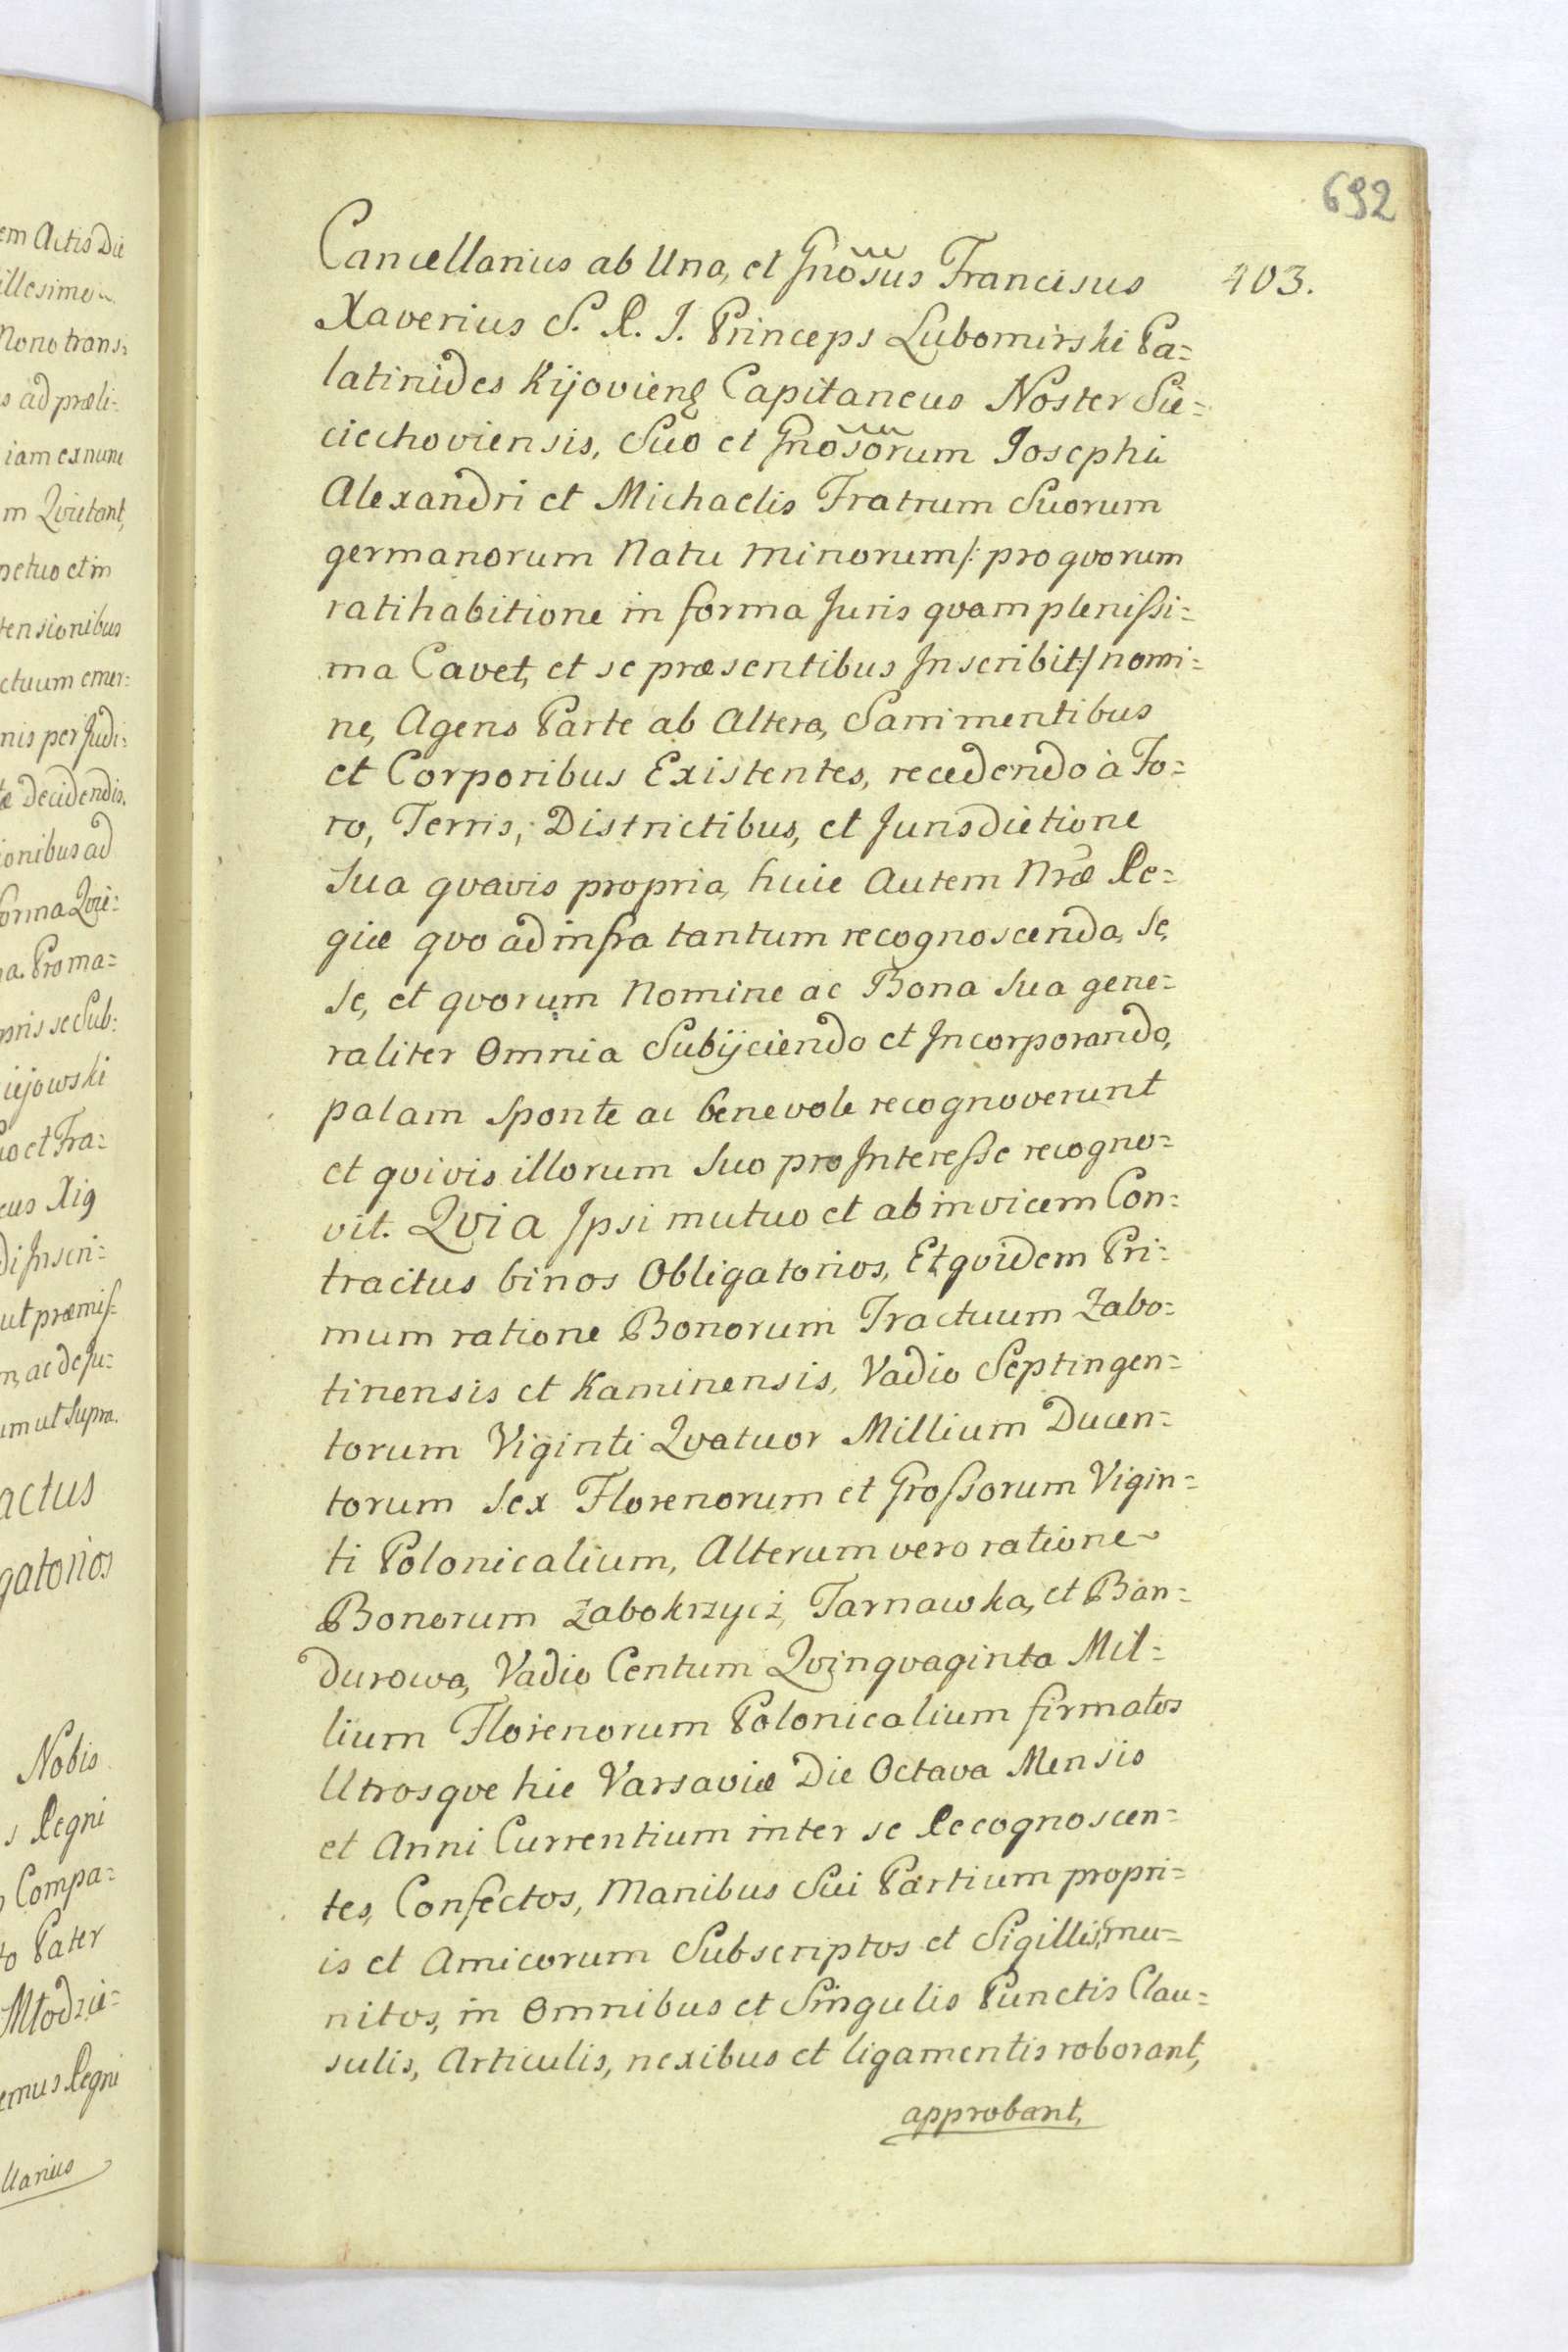 692
403.
Cancellarius ab Una, et Gnosus Francisus
Xaverius S. R. I. Princeps Lubomirski Pa=
latinides Kijoviens Capitaneus Noster Sie=
ciechoviensis, Suo et Gnosorum Josephi
Alexandri et Michaelis Fratrum Suorum
germanorum Natu minorum/: pro qvorum
ratihabitione in forma Juris qvam plenissi=
ma Cavet, et se præsentibus Inscribit:/ nomi=
ne, Agens Parte ab Altera, Sani mentibus
et Corporibus Existentes, recedendo à Fo=
ro, Terris, Districtibus, et Jurisdictione
Sua qvavis propria, huic Autem Nræ Re=
giæ qvo ad infra tantum recognoscenda, Se,
Se, et qvorum Nomine ac Bona Sua gene=
raliter Omnia Subijciendo et Incorporando,
palam Sponte ac benevole recognoverunt
et qvivis illorum Suo pro Interesse recogno=
vit. Qvia Ipsi mutuo et ab invicem Con=
tractus binos Obligatorios, Et qvidem Pri=
mum ratione Bonorum Tractuum Zabo=
tinensis et Kaminensis, Vadio Septingen=
torum Viginti Qvatuor Millium Ducen=
torum Sex Florenorum et Grossorum Vigin=
ti Polonicalium, Alterum vero ratione
Bonorum Zabokrzycz, Tarnawka, et Ban=
durowa, Vadio Centum Qvinqvaginta Mil=
lium Florenorum Polonicalium firmatos
Utrosqve hic Varsaviæ Die Octava Mensis
et Anni Currentium inter se Recognoscen=
tes, Confectos, Manibus Sui Partium propri=
is et Amicorum Subscriptos et Sigillis, mu=
nitos, in Omnibus et Singulis Punctis Clau=
sulis, Articulis, nexibus et ligamentis roborant,
approbant,
em Actis Die
illesimo
Nono trans=
s ad præli=
iam ex nunc
m Qvietant,
petuo et in
tensionibus
ctuum emer=
nis per Judi=
decidendis.
ionibus ad
forma Qvie=
a. Proma=
pris se Sub=
iejowski
et Fra=
cus Xig
di Inscri=
ut præmis=
m, ac de Ju=
um ut Supra.
actus
gatorios
Nobis
s Regni
Compa=
to Pater
Młodzie=
emus Regni
llarius